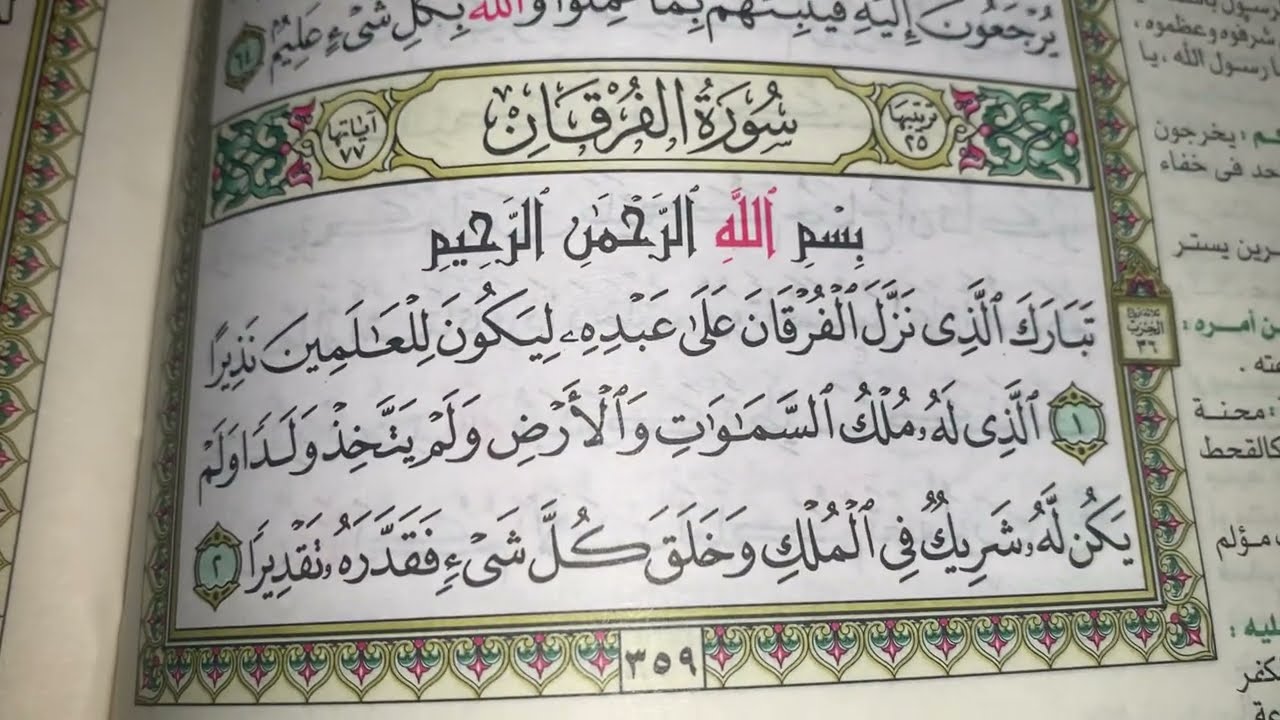 يُرْجَعُونَ إِلَيْهِ فَيُنَبِّئُهُم بِمَا عَمِلُوا۟ وَٱللَّهُ بِكُلِّ شَىْءٍ عَلِيمٌۢ ٦٤
ترتيبها ٢٥ سُورَةُ الفُرْقَانِ آياتها ٧٧
بِسْمِ ٱللَّهِ ٱلرَّحْمَٰنِ ٱلرَّحِيمِ
تَبَارَكَ ٱلَّذِى نَزَّلَ ٱلْفُرْقَانَ عَلَىٰ عَبْدِهِۦ لِيَكُونَ لِلْعَٰلَمِينَ نَذِيرًا
١ ٱلَّذِى لَهُۥ مُلْكُ ٱلسَّمَٰوَٰتِ وَٱلْأَرْضِ وَلَمْ يَتَّخِذْ وَلَدًا وَلَمْ
يَكُن لَّهُۥ شَرِيكٌ فِى ٱلْمُلْكِ وَخَلَقَ كُلَّ شَىْءٍ فَقَدَّرَهُۥ تَقْدِيرًا ٢
٣٥٩
الحزب
٣٦
شرفوه وعظموه ،
رسول الله ، يا
يخرجون
حد فى خفاء
رين يستر
ن أمره :
: محنة
كالقحط
مؤلم
ليه :